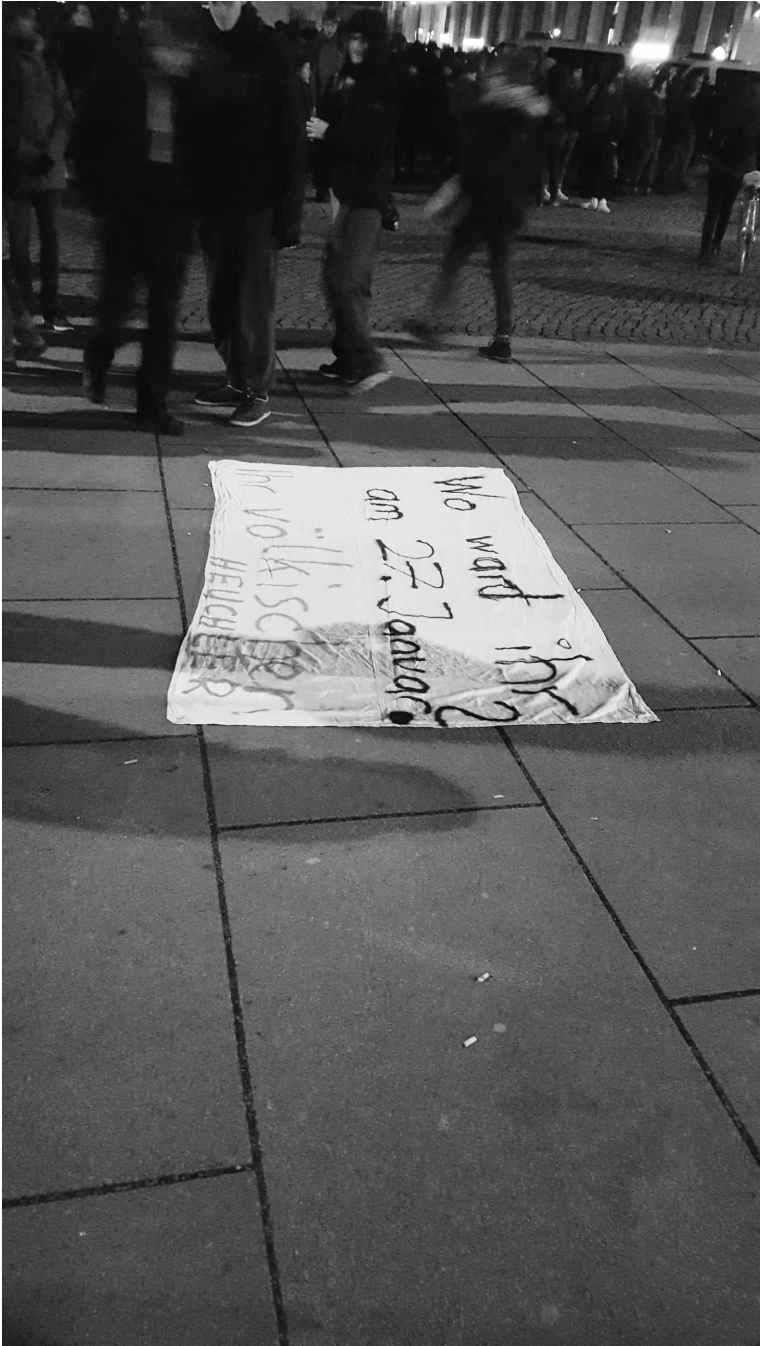 Wo ward ihr?
am 27. Januar
Ihr völkischen
HEUCHLER